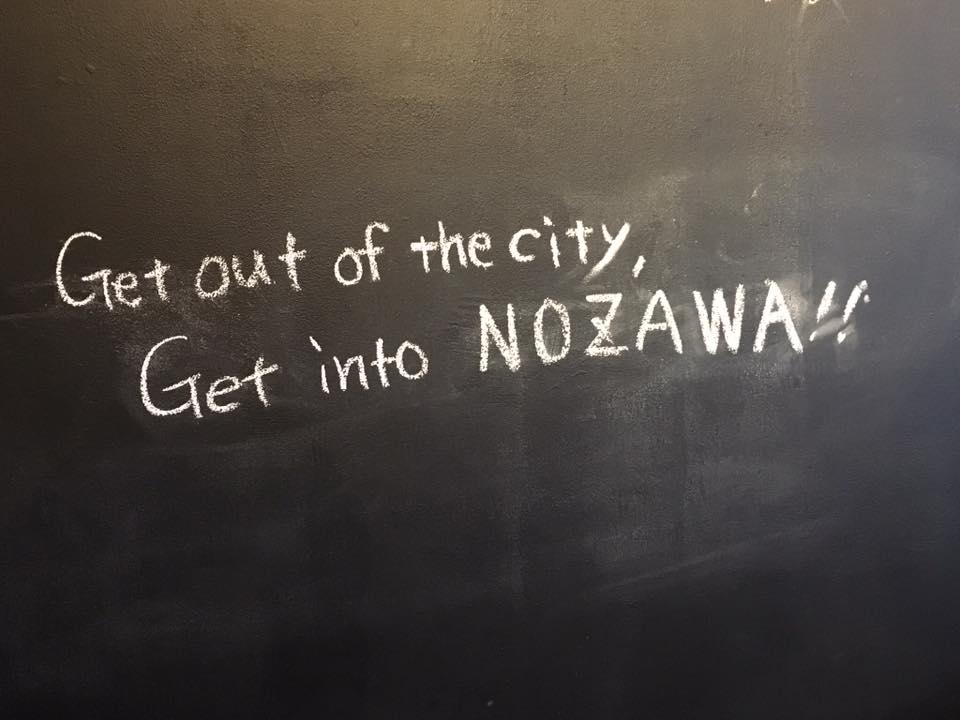 Get out of the city,
Get into NOZAWA!!